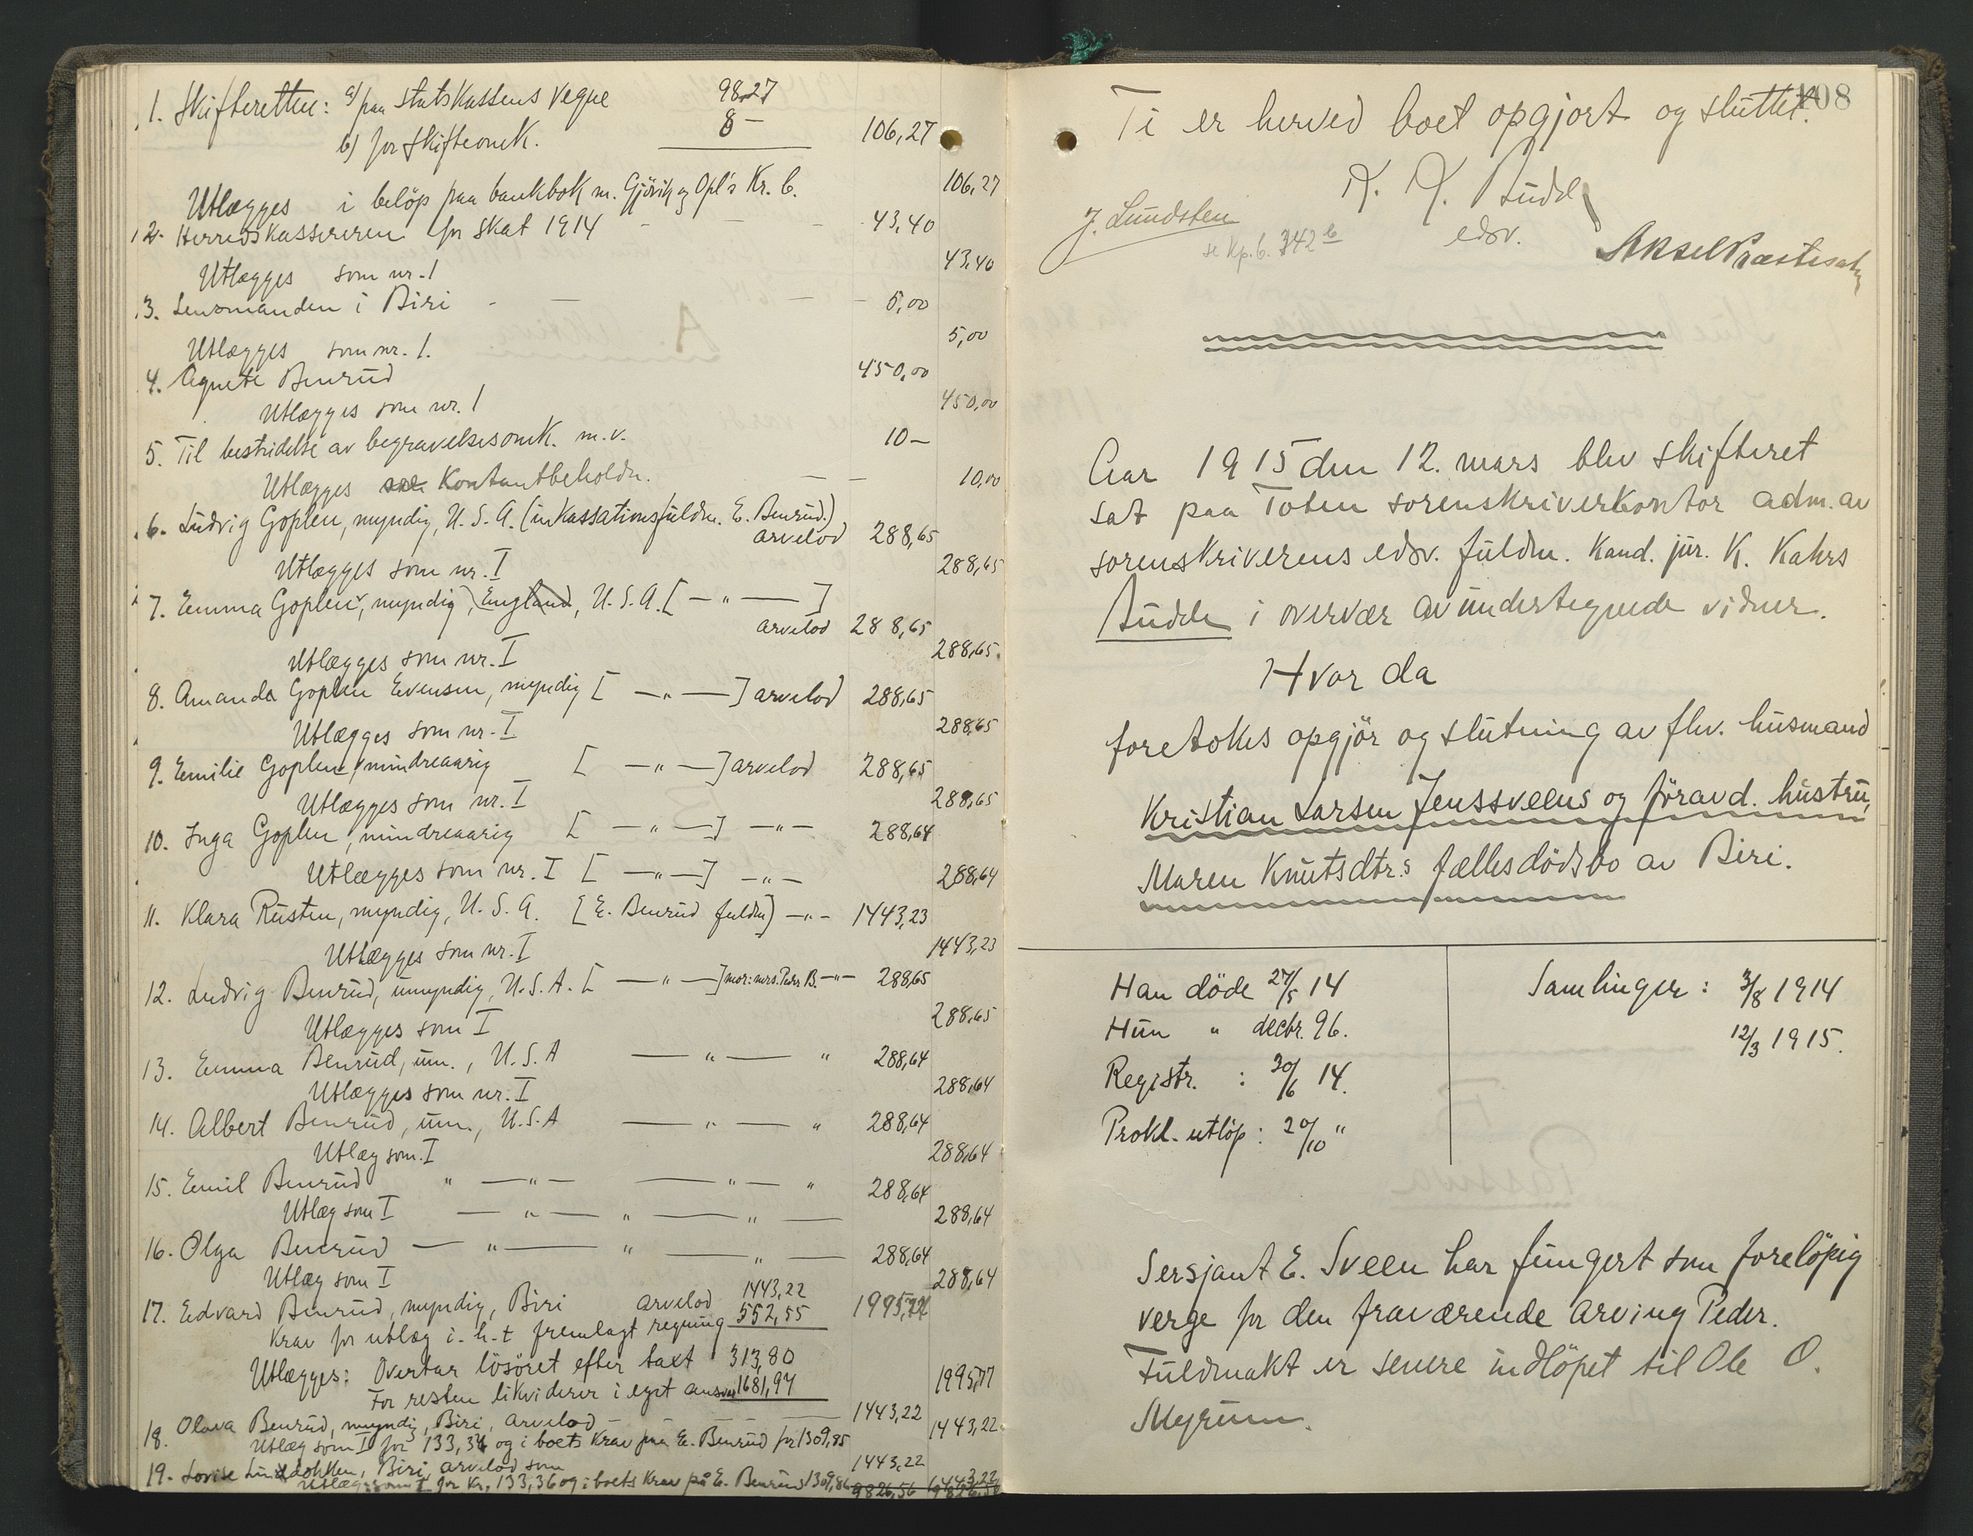 1. Skifteretten: a/ paa statskassens vegne 98,27
b) for skifteomk. 8 — 106,27
Utlægges i beløp paa bankbok m. Gjövik og Opl's Kr. b. 106,27
2. Herredskassereren for skat 1914 — 43,40
Utlægges som nr. 1 43,40
3. Lensmanden i Biri — 5,00
Utlægges som nr. 1. 5,00
4. Agnete Benrud 450,00
Utlægges som nr. 1 450,00
5. Til bestridelse av begravelsesomk. m.v. 10 —
Utlægges Kontantbeholdn. — 10,00
6. Ludvig Goplen, myndig, U.S.A. (inkassationsfuldm. E. Benrud.)
arvelod 288,65
Utlægges som nr. I 288,65
7. Emma Goplen, myndig, England, U.S.A. [ — „ — ]
arvelod 288,65
Utlægges som nr. I 288,65.
8. Amanda Goplen Evensen, myndig [ — „ — ] arvelod 288,65
Utlægges som nr. I 288,65
9. Emilie Goplen, mindreaarig [ — „ — ] arvelod 288,65
Utlægges som nr. I 288,65
10. Inga Goplen, mindreaarig [ — „ — ] — „ — 288,64
Utlægges som nr. I [ — „ — ] — „ — 288,64
11. Klara Rusten, myndig, U.S.A. [E. Benrud fuldm] — „ — 1443,23
Utlægges som nr. I 1443,23
12. Ludvig Benrud, umyndig, U.S.A. [ — „ — ] mor: mrs. Peder B. — „ — 288,65
Utlægges som I 288,65
13. Emma Benrud, um., U.S.A — „ — „ 288,64
Utlægges som nr. I 288,64
14. Albert Benrud, um., U.S.A — „ — „ 288,64
Utlæg som. I 288,64
15. Emil Benrud „ — „ — — „ — „ 288,64
Utlæg som I — „ — „ — „ — 288,64
16. Olga Benrud — „ — „ — „ — 288,64
Utlæg som I 288,64
17. Edvard Benrud, myndig, Biri arvelod 1443,22
Krav for utlæg i. h. t fremlagt regning 552,55 1995,77
Utlægges: Overtar lösöret efter taxt 313,80
For resten likviderer i eget ansvar 1681,97 1995,77
18. Olava Benrud, myndig, Biri, arvelod — 1443,22
Utlæg som I for 133,36 og i boets krav paa E. Benrud for 1309,85 1443,22
19. Lovise Lunddokken, Biri, arvelod som 1443,22
Utlæg som I for Kr. 133,36 og i boets krav på E. Benrud 1309,86 1443,22
9826,56 9826,56
108
Ti er herved boet opgjort og sluttet.
K. K. Budde
edsv.
J. Lundsten
se Kp. b. 342 b
Aksel Præstesæter
Aar 1915 den 12. mars blev skifteret
sat paa Toten sorenskriverkontor adm. av
sorenskriverens edsv. fuldm. Kand. jur. K. Kahrs
Budde i overvær av undertegnede vidner.
Hvor da
foretokes opgjör og slutning av fhv. husmand
Kristian Larsen Jenssveens og forutavd. hustru,
Maren Knutsdtr.s fællesdödsbo av Biri.
Han døde 27/5 14
Hun „ decbr. 96.
Registr. : 30/6 14.
Prokl. utløp : 20/10 „
Samlinger : 3/8 1914
12/3 1915.
Sersjant E. Sveen har fungert som foreløpig
verge for den fraværende arving Peder.
Fuldmakt er senere indløpet til Ole O.
Myrum.